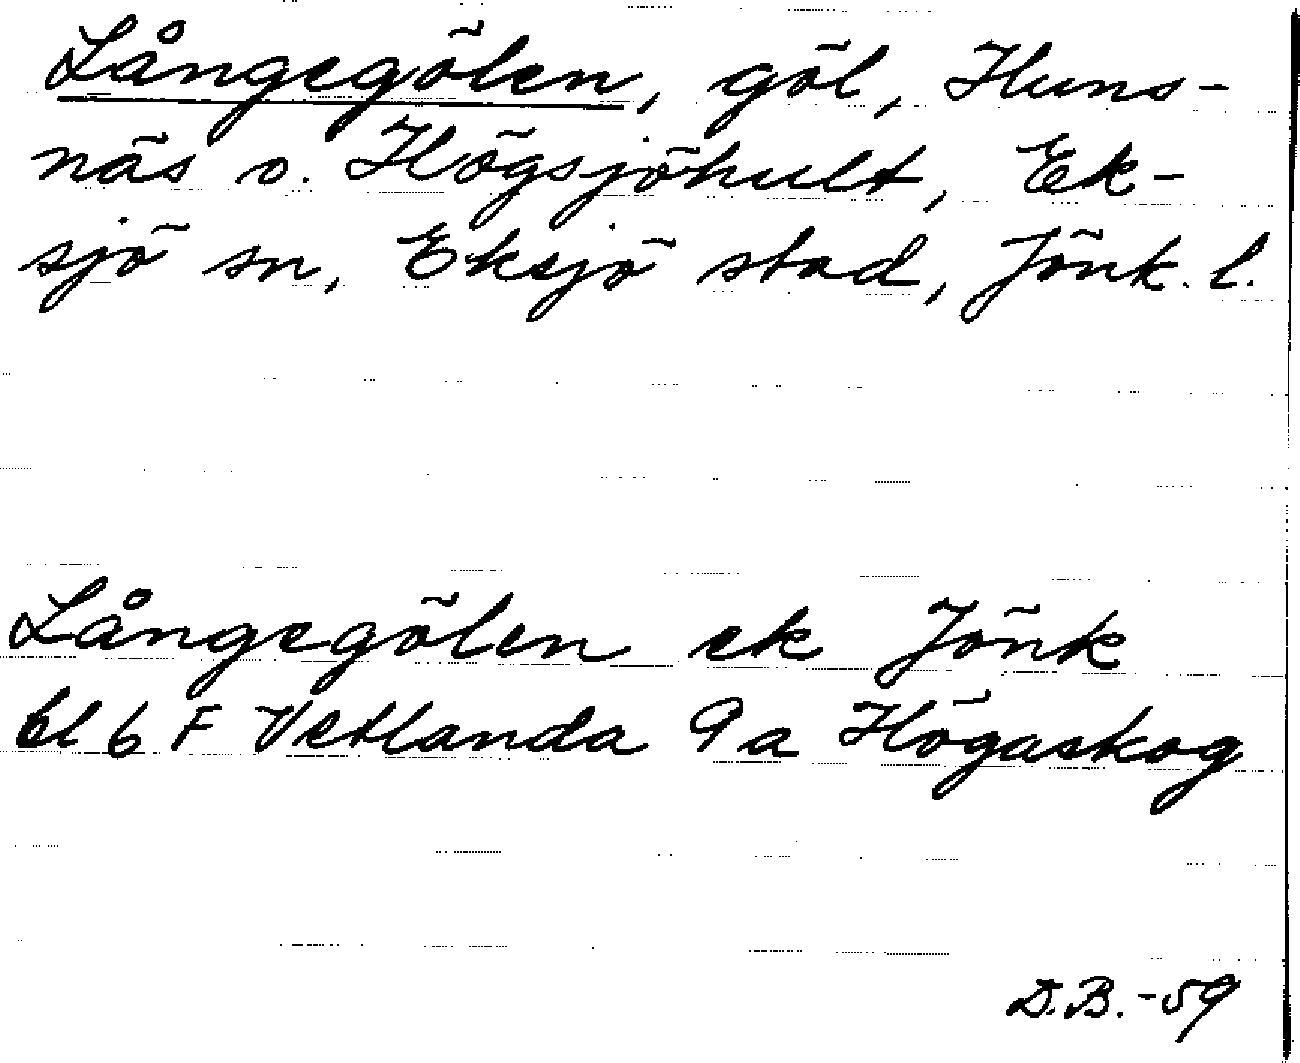 Långegölen, göl, Huns-
näs o. Högsjöhult, Ek-
sjö sn, Eksjö stad, Jönk. l.
Långegölen ek Jönk
bl 6 F Vetlanda 9 a Högaskog
D.B. -59